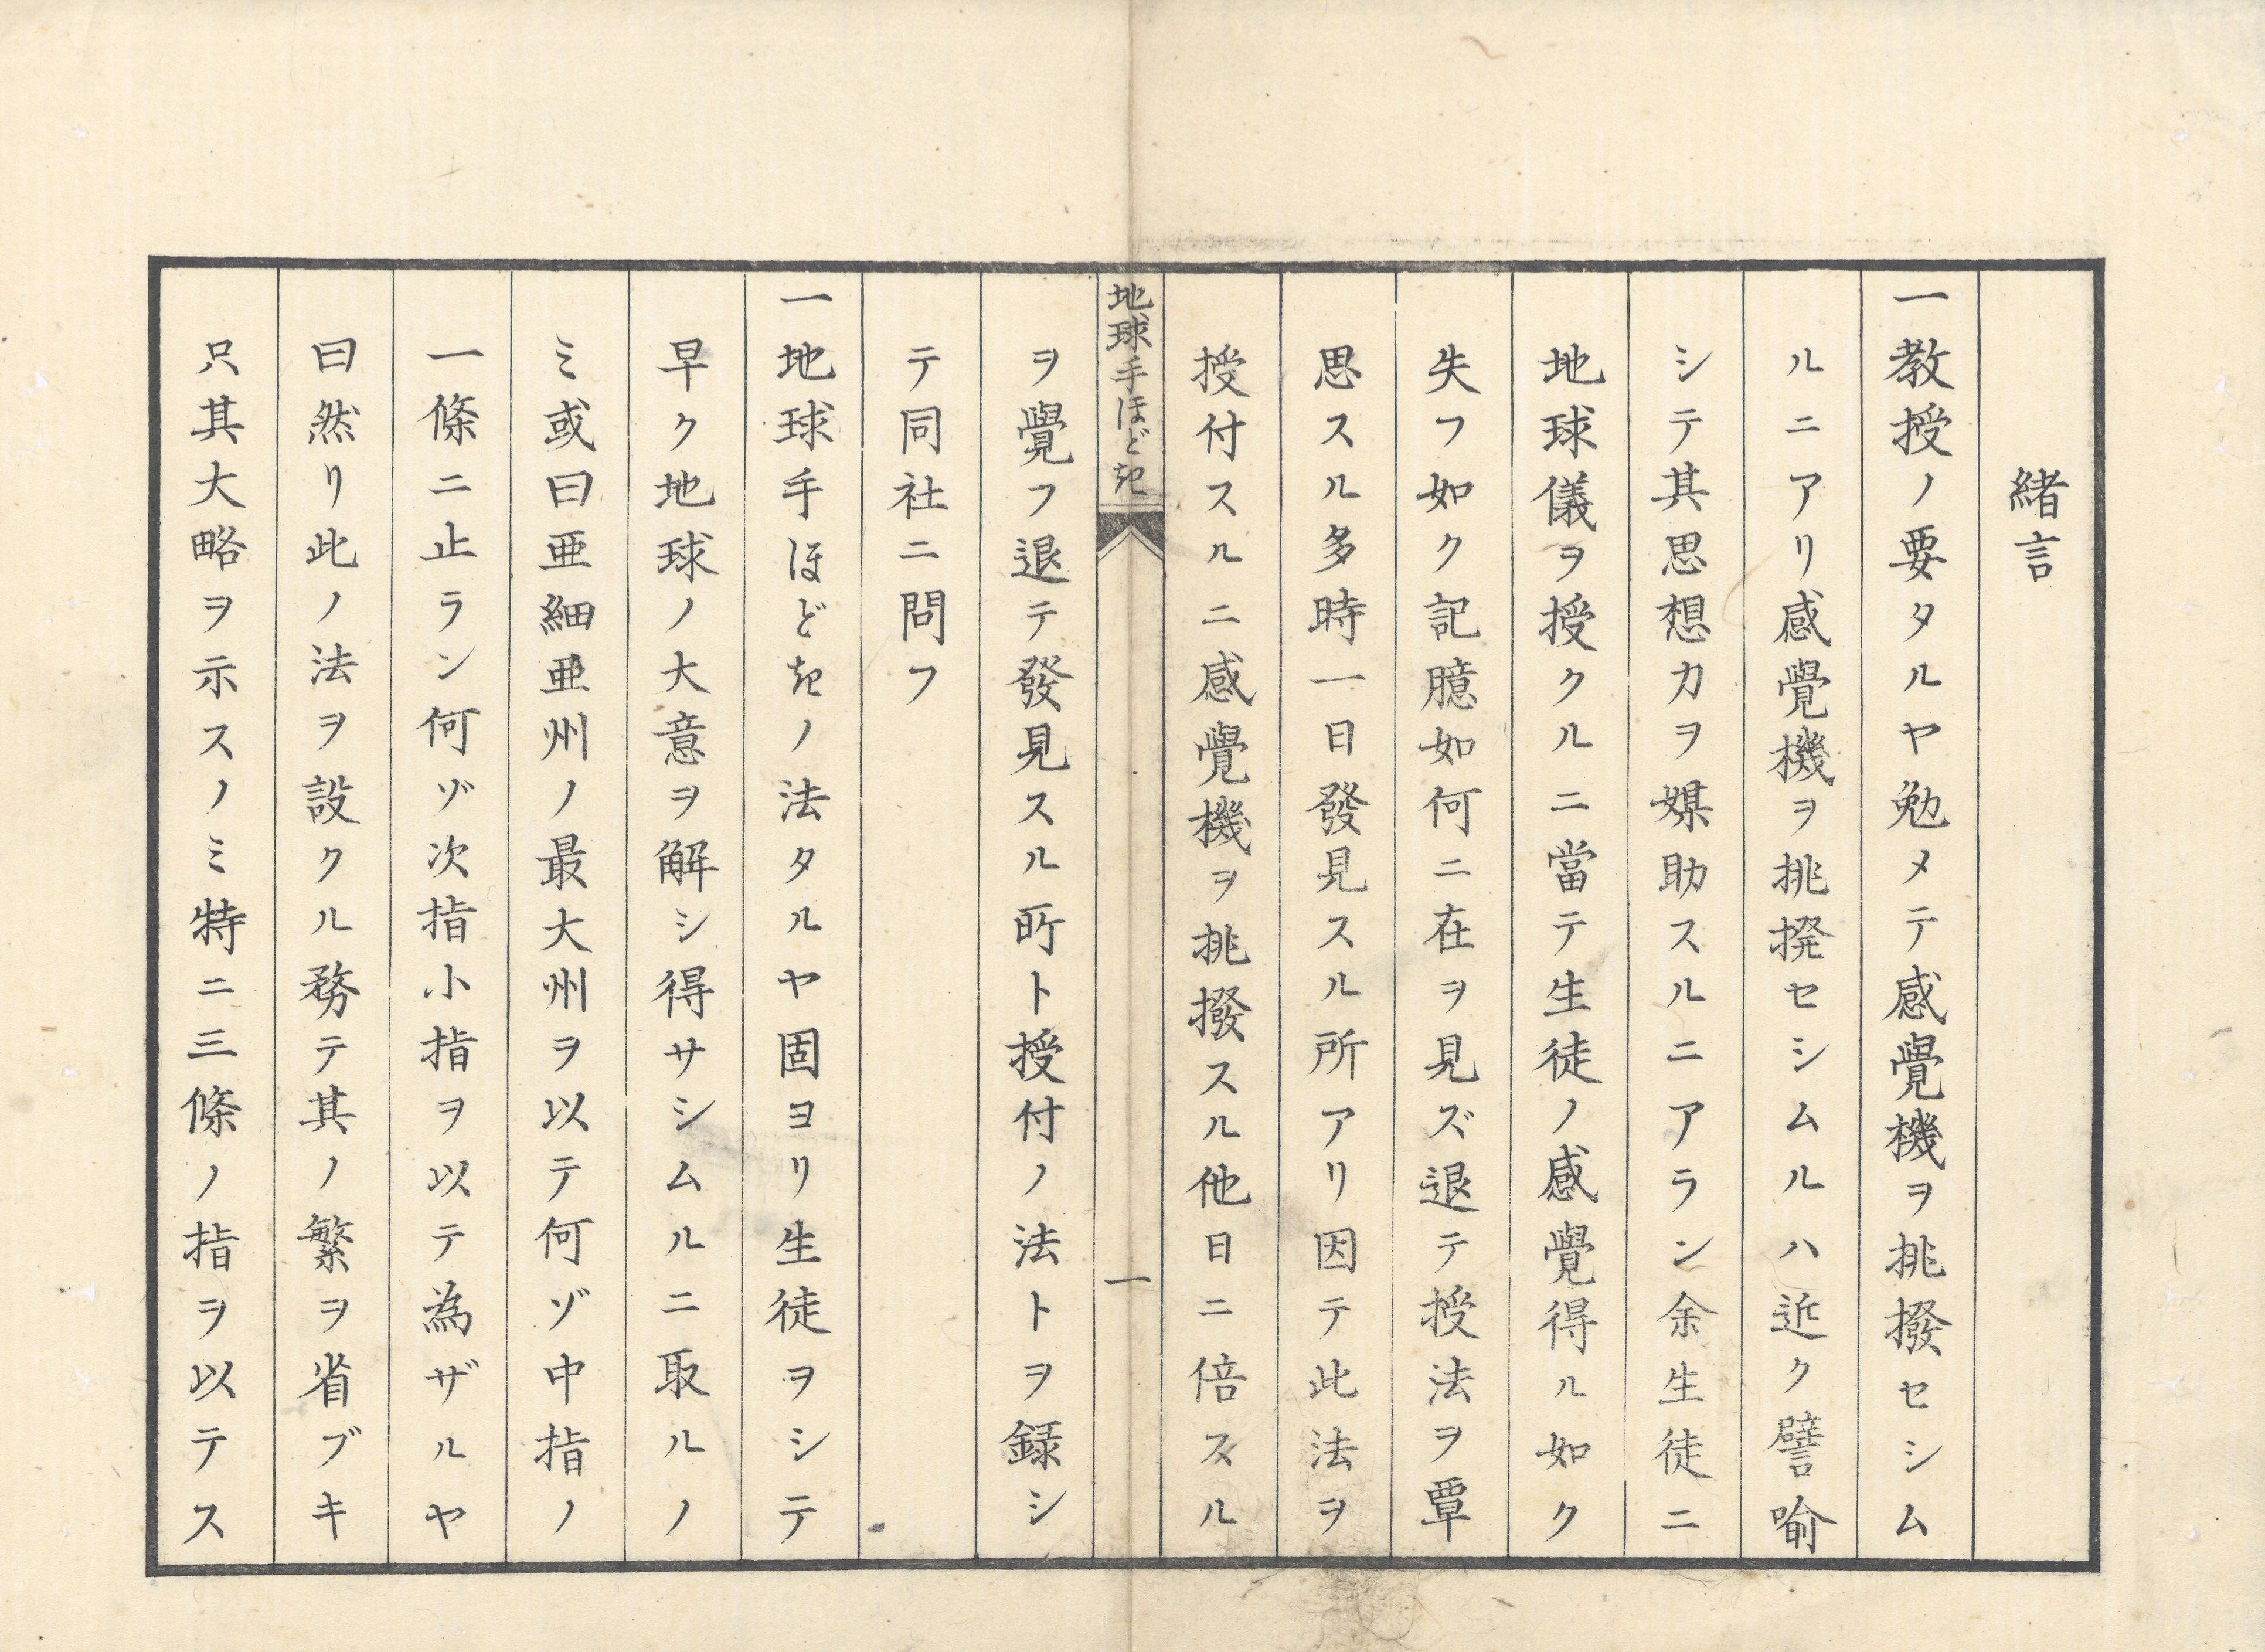 緒言
一教授ノ要タルヤ勉メテ感覺機ヲ挑撥セシム
ルニアリ感覺機ヲ挑撥セシムルハ近ク譬喻
シテ其思想力ヲ媒助スルニアラン余生徒ニ
地球儀ヲ授クルニ當テ生徒ノ感覺得ル如ク
失フ如ク記臆如何ニ在ヲ見ズ退テ授法ヲ覃
思スル多時一日發見スル所アリ因テ此法ヲ
授付スルニ感覺機ヲ挑撥スル他日ニ倍スル
地球手ほどき 一
ヲ覺フ退テ發見スル所ト授付ノ法トヲ録シ
テ同社ニ問フ
一地球手ほどきノ法タルヤ固ヨリ生徒ヲシテ
早ク地球ノ大意ヲ解シ得サシムルニ取ルノ
ミ或曰亜細亜州ノ最大州ヲ以テ何ゾ中指ノ
一條ニ止ラン何ゾ次指小指ヲ以テ為ザルヤ
曰然リ此ノ法ヲ設クル務テ其ノ繁ヲ省ブキ
只其大略ヲ示スノミ特ニ三條ノ指ヲ以テス